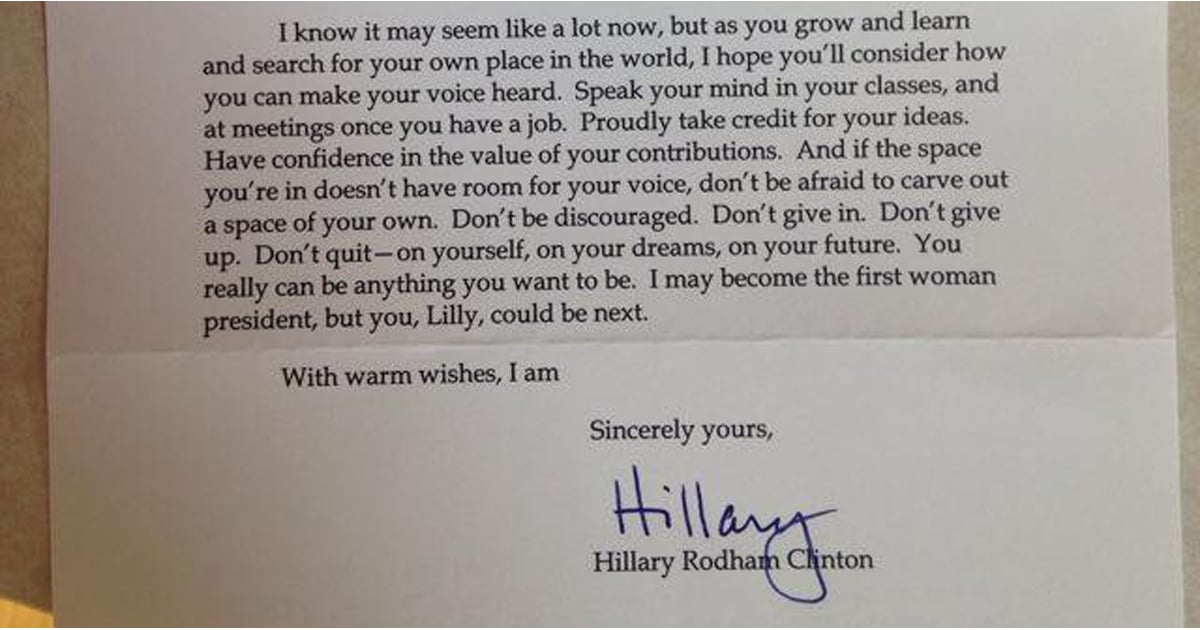 I know it may seem like a lot now, but as you grow and learn
and search for your own place in the world, I hope you'll consider how
you can make your voice heard.  Speak your mind in your classes, and
at meetings once you have a job.  Proudly take credit for your ideas.
Have confidence in the value of your contributions.  And if the space
you're in doesn't have room for your voice, don't be afraid to carve out
a space of your own.  Don't be discouraged.  Don't give in.  Don't give
up.  Don't quit—on yourself, on your dreams, on your future.  You
really can be anything you want to be.  I may become the first woman
president, but you, Lilly, could be next.
With warm wishes, I am
Sincerely yours,
Hillary
Hillary Rodham Clinton